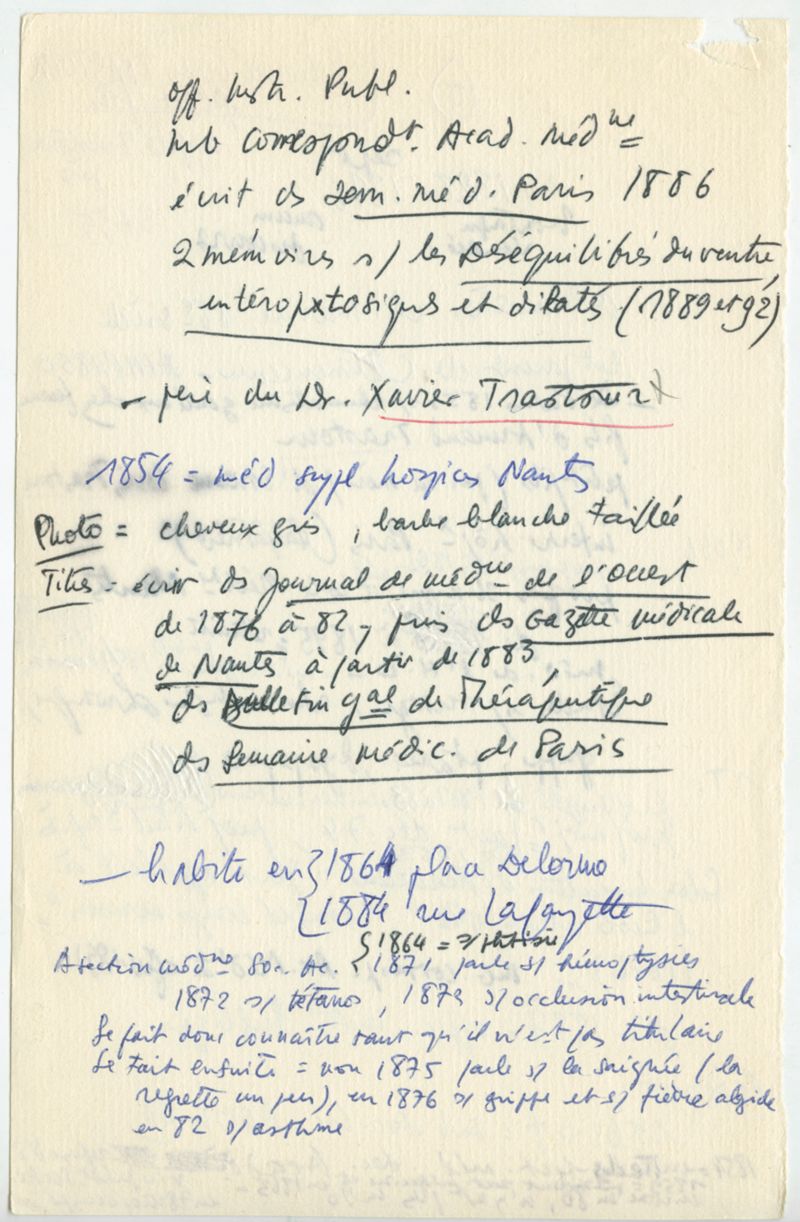 off. Instr. Publ.
mb Correspondt. Acad. médne
écrit ds Sem. méd. Paris 1886
2 mémoires s/ les Déséquilibrés du ventre,
entéroptosiques et dilatés (1889 et 92)
– père du Dr. Xavier Trastour
1854 = méd suppl hospices Nantes
Photo = cheveux gris, barbe blanche taillée
Titres = écrit ds Journal de médne de l'Ouest
de 1876 à 82, puis ds Gazette médicale
de Nantes à partir de 1883,
ds Bulletin gal de Thérapeutique
ds Semaine médic. de Paris
– habite en { 1864 place Delorme
{ 1884 rue Lafayette
{ 1864 = s/ phtisie
A section médne Soc. Ac. { 1871 parle s/ hémoptysies
1872 s/ tétanos, 1873 s/ occlusion intestinale
Se fait donc connaître tant qu'il n'est pas titulaire
Se tait ensuite = non 1875 parle s/ la saignée (la
regrette un peu), en 1876 s/ grippe et s/ fièvre algide
en 82 s/ asthme